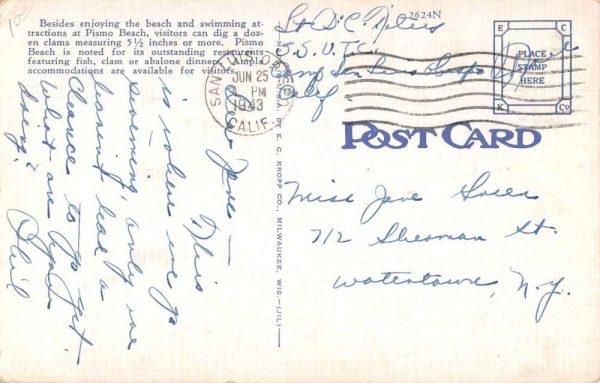 Besides enjoying the beach and swimming at-
tractions at Pismo Beach, visitors can dig a doz-
en clams measuring 5½ inches or more. Pismo
Beach is noted for its outstanding restaurants
featuring fish, clam or abalone dinners.
accommodations are available for visitors.
Dear Jane —
This
is where we go
swimming, only we
haven't had a
chance to go yet.
What are you
doing?
Phil
2624N
Camp San Luis Obispo
Calif.
SAN LUIS OBISPO
JUN 25
PM
1943
CALIF.
E C
PLACE
STAMP
HERE
K Co
POST CARD
BY E. C. KROPP CO., MILWAUKEE, WIS.—(JIL)
Miss Jane
712 Sherman St.
Watertown, N.Y.